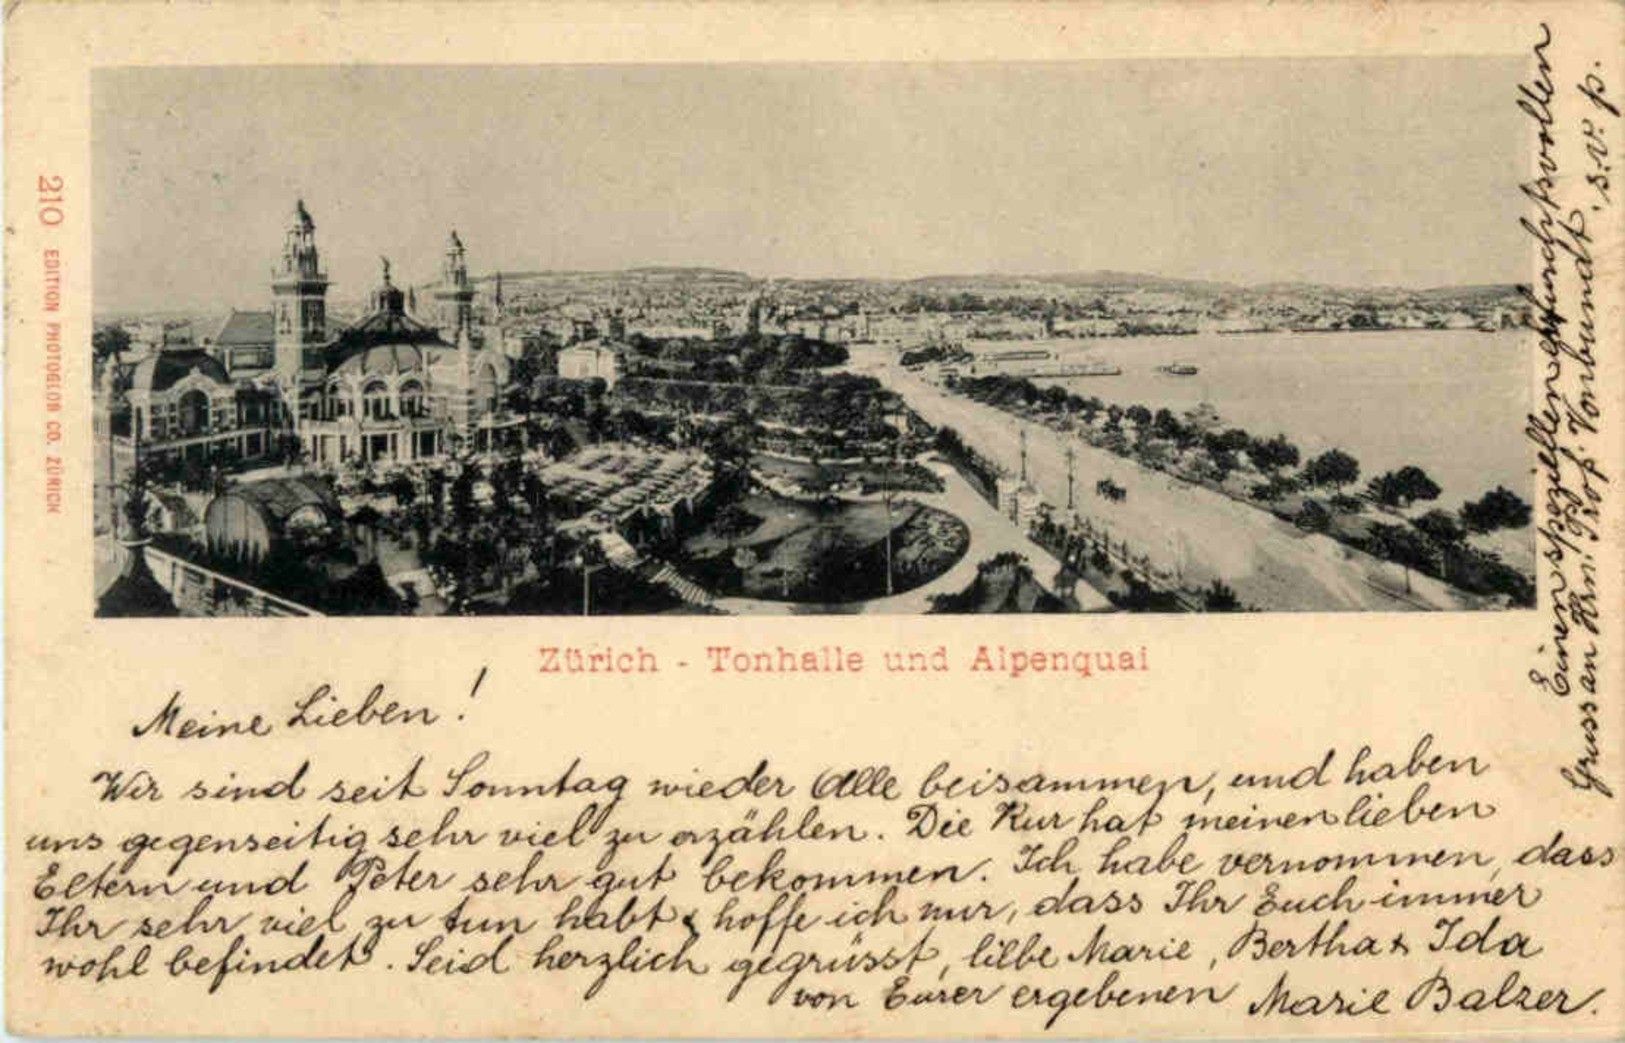 210 EDITION PHOTOGLOB CO. ZÜRICH
Zürich - Tonhalle und Alpenquai
Meine Lieben!
Wir sind seit Sonntag wieder Alle beisammen, und haben
uns gegenseitig sehr viel zu erzählen. Die Kur hat meinen lieben
Eltern und Peter sehr gut bekommen. Ich habe vernommen, dass
Ihr sehr viel zu tun habt & hoffe ich nur, dass Ihr Euch immer
wohl befindet. Seid herzlich gegrüsst, liebe Marie, Bertha & Ida
von Eurer ergebenen Marie Balzer.
Einen speziellen ehrfurchtsvollen
Gruss an Hrn. Prof. Vonbundt, s.v.p.